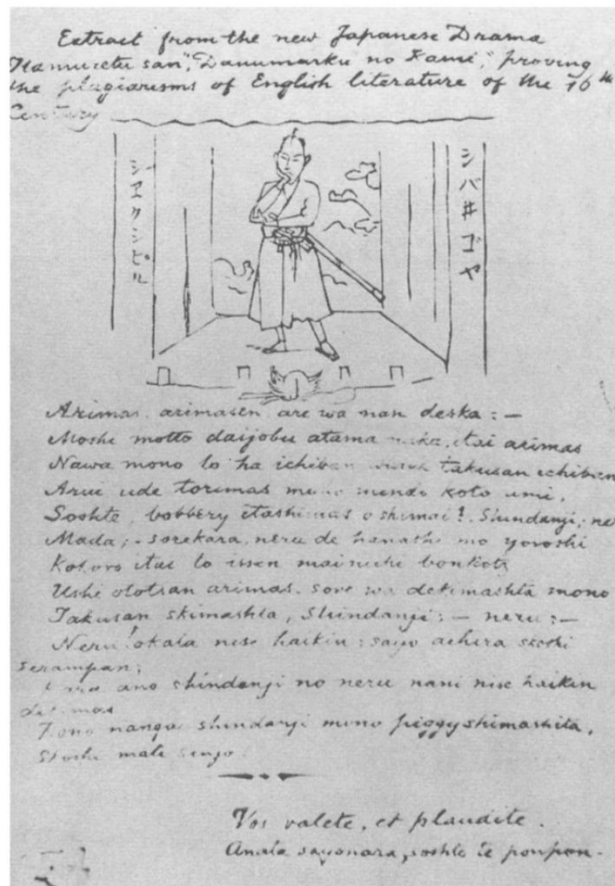 Extract from the new Japanese Drama
Hamuretu san, "Danumarku no Kami," proving
the plagiarisms of English literature of the 16th
Century
シヱクシピル
シバ井ゴヤ
Arimas, arimasen, are wa nan deska :—
Moshi motto daijobu atama itai arimas
Nawa mono to ha ichiban takusan ichiban
Arui ude torimas mono mendo koto umi,
Soshte, bobbery itashimas o shimai? Shindanji; ne
Mada; - sorekara, neru de hanashi mo yoroshi
Kokoro itai to issen mainichi bonkotz
Ushi ototsan arimas. sore wa dekimashta mono
Takusan skimashta, Shindanji; — neru :—
Neru! okata nise haikin; sayo achira skoshi
serampan;
ano shindanji no neru nani nise haikin
dekimas
Kono nangai shindanji mono piggy shimashita,
Skoshi mate
Vos valete, et plaudite.
Anata sayonara, soshte te ponpon.